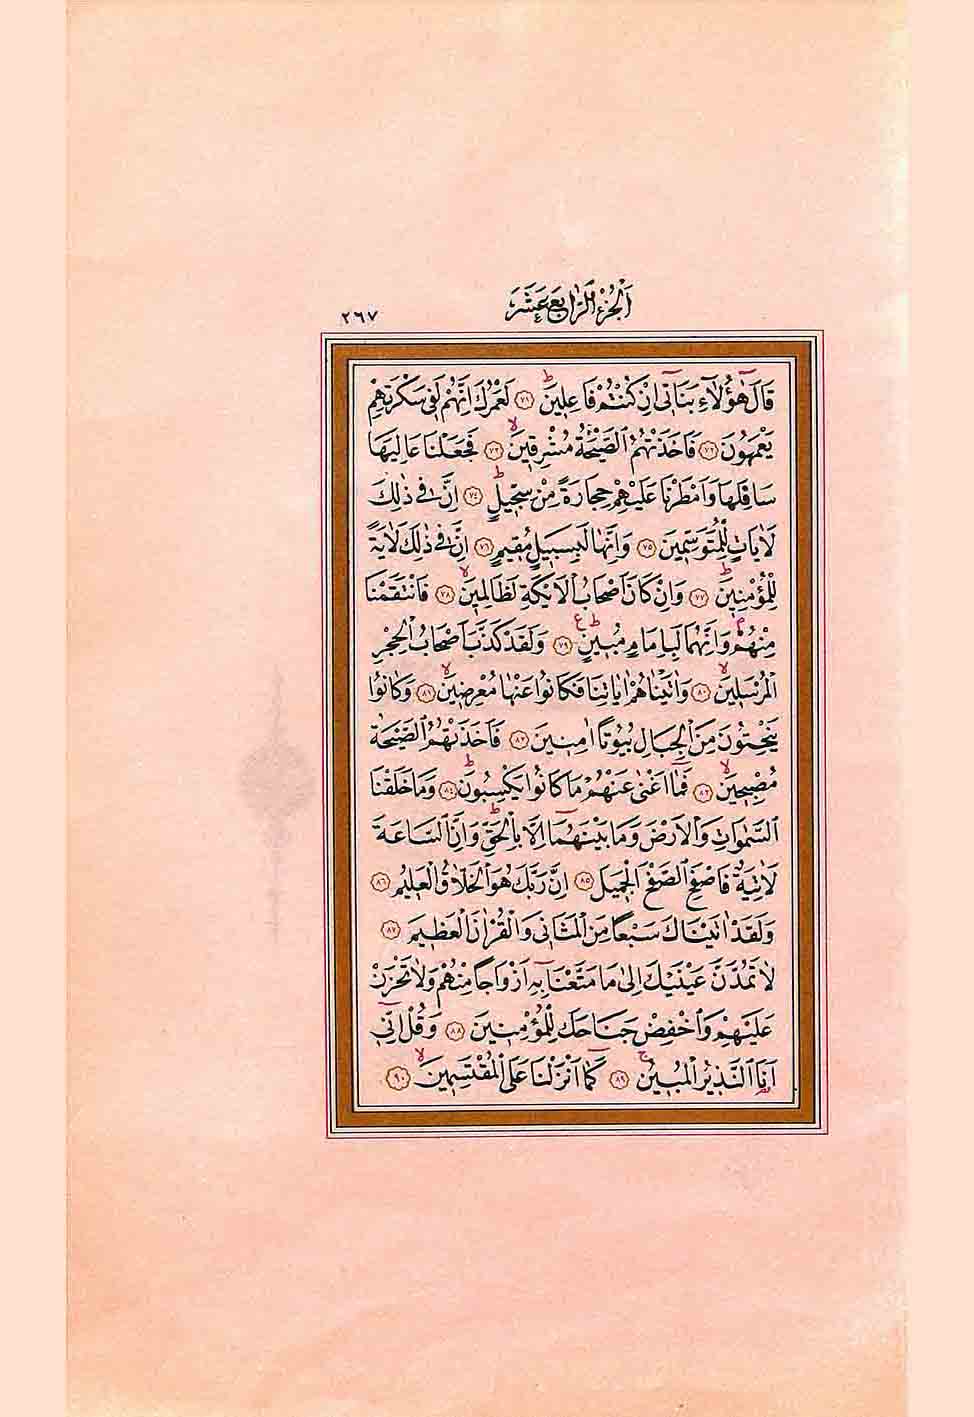 اَلْجُزْءُ الرَّابِعَ عَشَرَ
٢٦٧
قَالَ هٰٓؤُ۬لَٓاءِ بَنَات۪ٓي اِنْ كُنْتُمْ فَاعِل۪ينَۜ ﴿٧١﴾ لَعَمْرُكَ اِنَّهُمْ لَف۪ي سَكْرَتِهِمْ
يَعْمَهُونَ ﴿٧٢﴾ فَاَخَذَتْهُمُ الصَّيْحَةُ مُشْرِق۪ينَۙ ﴿٧٣﴾ فَجَعَلْنَا عَالِيَهَا
سَافِلَهَا وَاَمْطَرْنَا عَلَيْهِمْ حِجَارَةً مِنْ سِجّ۪يلٍۜ ﴿٧٤﴾ اِنَّ ف۪ي ذٰلِكَ
لَاٰيَاتٍ لِلْمُتَوَسِّم۪ينَ ﴿٧٥﴾ وَاِنَّهَا لَبِسَب۪يلٍ مُق۪يمٍ ﴿٧٦﴾ اِنَّ ف۪ي ذٰلِكَ لَاٰيَةً
لِلْمُؤْمِن۪ينَۜ ﴿٧٧﴾ وَاِنْ كَانَ اَصْحَابُ الْاَيْكَةِ لَظَالِم۪ينَۙ ﴿٧٨﴾ فَانْتَقَمْنَا
مِنْهُمْۢ وَاِنَّهُمَا لَبِاِمَامٍ مُب۪ينٍۜ ع ﴿٧٩﴾ وَلَقَدْ كَذَّبَ اَصْحَابُ الْحِجْرِ
الْمُرْسَل۪ينَۙ ﴿٨٠﴾ وَاٰتَيْنَاهُمْ اٰيَاتِنَا فَكَانُوا عَنْهَا مُعْرِض۪ينَۙ ﴿٨١﴾ وَكَانُوا
يَنْحِتُونَ مِنَ الْجِبَالِ بُيُوتًا اٰمِن۪ينَ ﴿٨٢﴾ فَاَخَذَتْهُمُ الصَّيْحَةُ
مُصْبِح۪ينَۙ ﴿٨٣﴾ فَمَٓا اَغْنٰى عَنْهُمْ مَا كَانُوا يَكْسِبُونَۜ ﴿٨٤﴾ وَمَا خَلَقْنَا
السَّمٰوَاتِ وَالْاَرْضَ وَمَا بَيْنَهُمَٓا اِلَّا بِالْحَقِّۜ وَاِنَّ السَّاعَةَ
لَاٰتِيَةٌ فَاصْفَحِ الصَّفْحَ الْجَم۪يلَ ﴿٨٥﴾ اِنَّ رَبَّكَ هُوَ الْخَلَّاقُ الْعَل۪يمُ ﴿٨٦﴾
وَلَقَدْ اٰتَيْنَاكَ سَبْعًا مِنَ الْمَثَان۪ي وَالْقُرْاٰنَ الْعَظ۪يمَ ﴿٨٧﴾
لَا تَمُدَّنَّ عَيْنَيْكَ اِلٰى مَا مَتَّعْنَا بِه۪ٓ اَزْوَاجًا مِنْهُمْ وَلَا تَحْزَنْ
عَلَيْهِمْ وَاخْفِضْ جَنَاحَكَ لِلْمُؤْمِن۪ينَ ﴿٨٨﴾ وَقُلْ اِنّ۪ٓي
اَنَا النَّذ۪يرُ الْمُب۪ينُۚ ﴿٨٩﴾ كَمَٓا اَنْزَلْنَا عَلَى الْمُقْتَسِم۪ينَۙ ﴿٩٠﴾